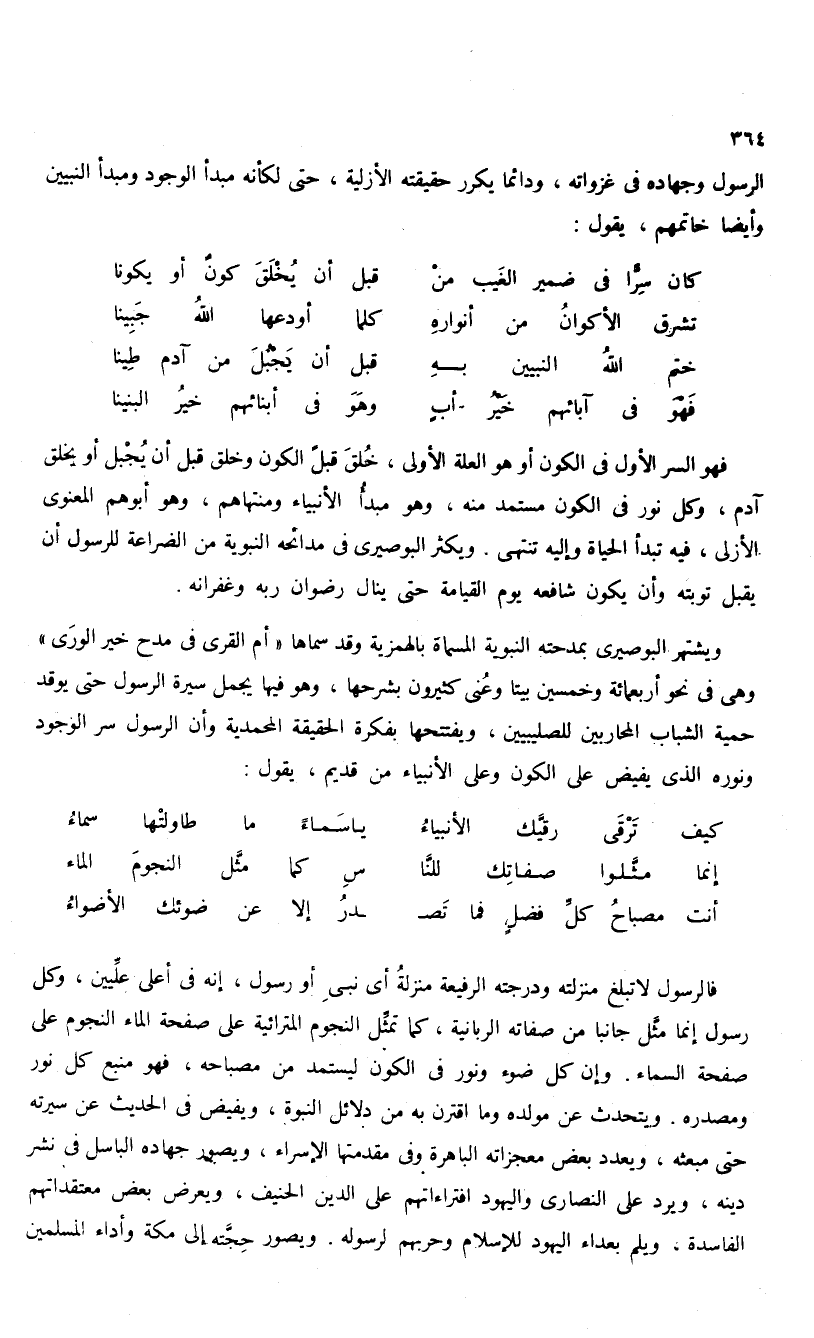 ٣٦٤
الرسول وجهاده فى غزواته ، ودائما يكرر حقيقته الأزلية ، حتى لكأنه مبدأ الوجود ومبدأ النبيين
وأيضا خاتمهم ، يقول :
كان سِرًّا فى ضمير الغَيب منْ قبل أن يُخْلَقَ كونٌ أو يكونا
تشرق الأكوانُ من أنوارهِ كلما أودعها اللهُ جَبِينا
ختم اللهُ النبيين بــهِ قبل أن يَجْبُلَ من آدم طِينا
فَهْوَ فى آبائهم خَيْرُ أبٍ وهَوَ فى أبنائهم خيرُ البنينا
فهو السر الأول فى الكون أو هو العلة الأولى ، خُلقَ قبلَ الكون وخلق قبل أن يُجْبل أو يخلق
آدم ، وكل نور فى الكون مستمد منه ، وهو مبدأُ الأنبياء ومنتهاهم ، وهو أبوهم المعنوى
الأزلى ، فيه تبدأ الحياة وإليه تنتهى . ويكثر البوصيرى فى مدائحه النبوية من الضراعة للرسول أن
يقبل توبته وأن يكون شافعه يوم القيامة حتى ينال رضوان ربه وغفرانه .
ويشتهر البوصيرى بمدحته النبوية المسماة بالهمزية وقد سماها « أم القرى فى مدح خير الورَى »
وهى فى نحو أربعمائة وخمسين بيتا وعُنى كثيرون بشرحها ، وهو فيها يجمل سيرة الرسول حتى يوقد
حمية الشباب المحاربين للصليبيين ، ويفتتحها بفكرة الحقيقة المحمدية وأن الرسول سر الوجود
ونوره الذى يفيض على الكون وعلى الأنبياء من قديم ، يقول :
كيف تَرْقَى رقيَّك الأنبياءُ ياسَمـاءً ما طاولتْها سماءُ
إنما مثَّـلوا صفـاتِك للنَّا سِ كما مثَّل النجومَ الماء
أنت مصباحُ كلِّ فضلٍ فما تَصـ ـدرُ إلا عن ضوئك الأضواءُ
فالرسول لاتبلغ منزلته ودرجته الرفيعة منزلةُ أى نبىٍ أو رسول ، إنه فى أعلى علِّيين ، وكل
رسول إنما مثَّل جانبا من صفاته الربانية ، كما تمثِّل النجوم المترائية على صفحة الماء النجوم على
صفحة السماء . وإن كل ضوء ونور فى الكون ليستمد من مصباحه ، فهو منبع كل نور
ومصدره . ويتحدث عن مولده وما اقترن به من دلائل النبوة ، ويفيض فى الحديث عن سيرته
حتى مبعثه ، ويعدد بعض معجزاته الباهرة وفى مقدمتها الإسراء ، ويصور جهاده الباسل فى نشر
دينه ، ويرد على النصارى واليهود افتراءاتهم على الدين الحنيف ، ويعرض بعض معتقداتهم
الفاسدة ، ويلم بعداء اليهود للإسلام وحربهم لرسوله . ويصور حِجَّته إلى مكة وأداء المسلمين